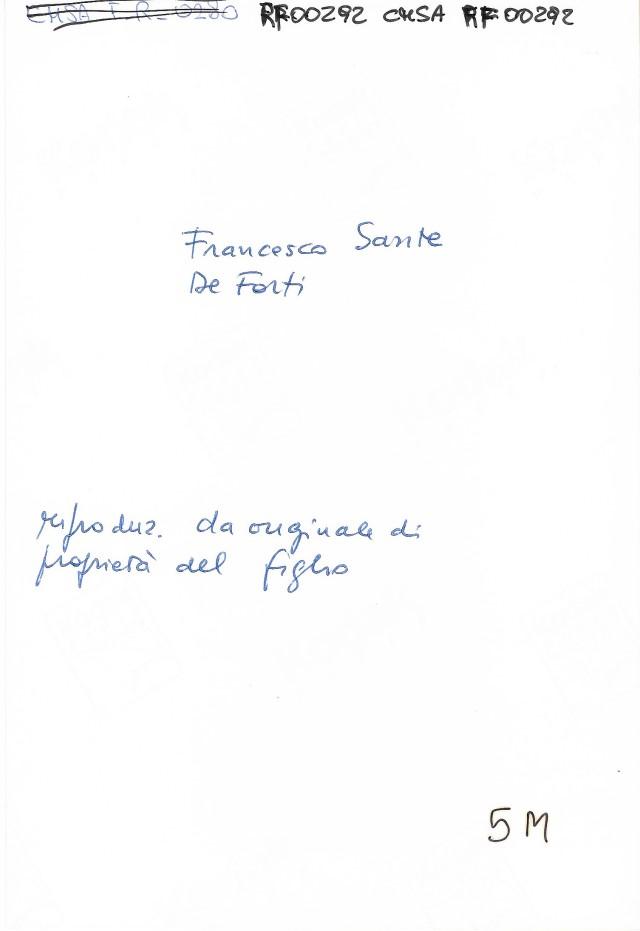 CMSA F R_ 0280 RF00292 CMSA RF 00292
Francesco Sante
De Forti
riproduz. da originale di
proprietà del figlio
5 M